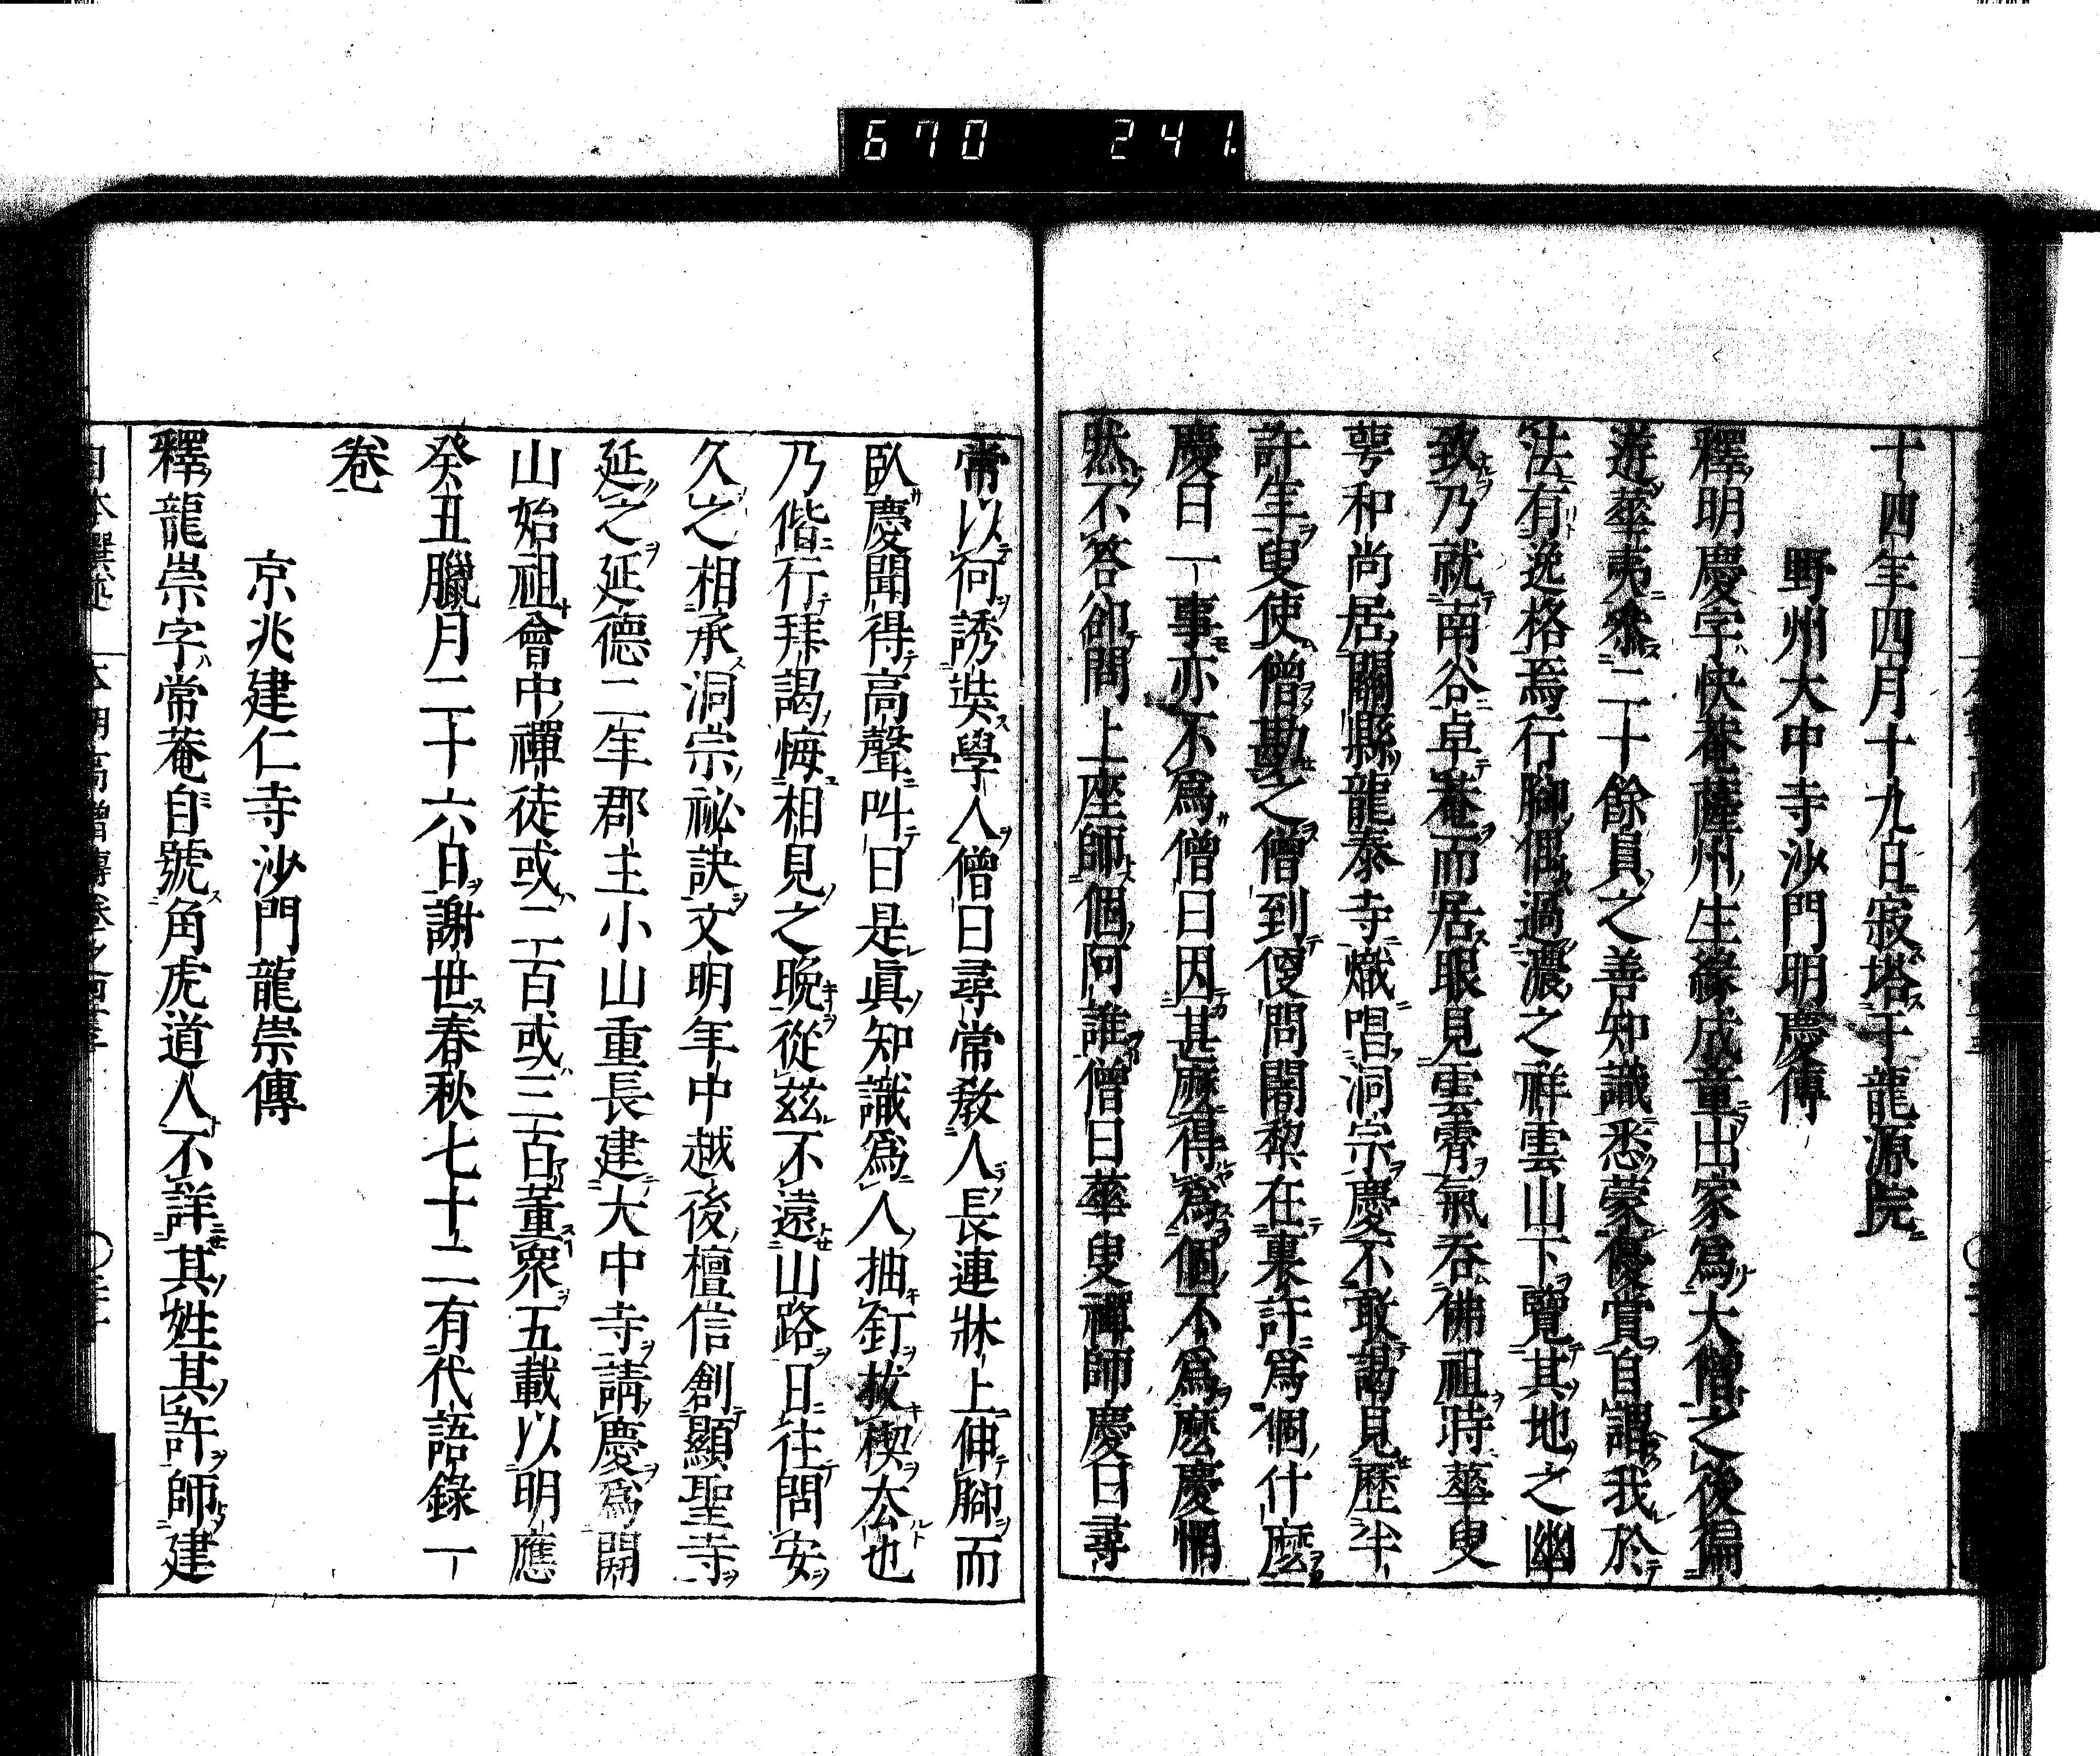 670 241.
十四年四月十九日寂塔于龍源院
野州大中寺沙門明慶傳
釋明慶字快菴薩州生緣成童出家爲大僧之後徧
遊華夷參二十餘員之善知識悉蒙優賞自謂我於
法有逸格焉行脚偶過濃之祥雲山下覽其地之幽
致乃就南谷卓菴而居眼見雲霄氣吞佛祖時華叟
蕚和尚居關縣龍泰寺熾唱洞宗慶不敢謁見歷半
許年叟使僧勘之僧到便問闍梨在裏許爲個什麼
慶曰一事亦不爲僧曰因甚麽得爲個不爲麽慶惘
然不答卻問上座師個阿誰僧曰華叟禪師慶曰尋
常以何誘奘學人僧曰尋常教人長連牀上伸腳而
臥慶聞得高聲叫曰是眞知識爲人抽釘拔楔厺也
乃偕行拜謁悔相見之晩從茲不遠山路日往問安
久之相承洞宗祕訣文明年中越後檀信創顯聖寺
延之延德二年郡主小山重長建大中寺請慶爲開
山始祖會中禪徒或二百或三百董衆五載以明應
癸丑臘月二十六日謝世春秋七十二有代語錄一
卷
京兆建仁寺沙門龍崇傳
釋龍崇字常菴自號角虎道人不詳其姓其許師建